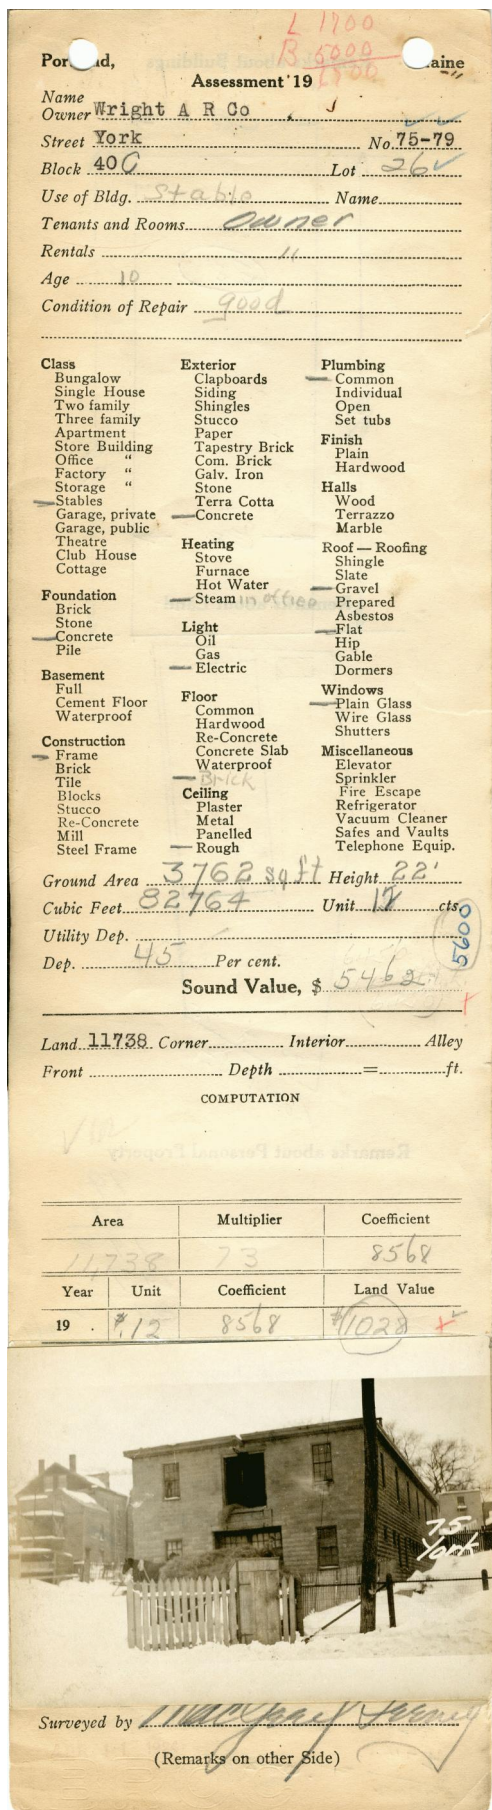 L 1700
B 5000
Portland, Maine
Assessment '19
Name
Owner Wright A R Co
Street York No. 75-79
Block 40 C Lot 26
Use of Bldg. Stable Name
Tenants and Rooms Owner
Rentals "
Age 10
Condition of Repair good
Class
Bungalow
Single House
Two family
Three family
Apartment
Store Building
Office "
Factory "
Storage "
Stables
Garage, private
Garage, public
Theatre
Club House
Cottage
Foundation
Brick
Stone
Concrete
Pile
Basement
Full
Cement Floor
Waterproof
Construction
Frame
Brick
Tile
Blocks
Stucco
Re-Concrete
Mill
Steel Frame
Exterior
Clapboards
Siding
Shingles
Stucco
Paper
Tapestry Brick
Com. Brick
Galv. Iron
Stone
Terra Cotta
Concrete
Heating
Stove
Furnace
Hot Water
Steam in office
Light
Oil
Gas
Electric
Floor
Common
Hardwood
Re-Concrete
Concrete Slab
Waterproof
Brick
Ceiling
Plaster
Metal
Panelled
Rough
Plumbing
Common
Individual
Open
Set tubs
Finish
Plain
Hardwood
Halls
Wood
Terrazzo
Marble
Roof — Roofing
Shingle
Slate
Gravel
Prepared
Asbestos
Flat
Hip
Gable
Dormers
Windows
Plain Glass
Wire Glass
Shutters
Miscellaneous
Elevator
Sprinkler
Fire Escape
Refrigerator
Vacuum Cleaner
Safes and Vaults
Telephone Equip.
Ground Area 3762 sq ft Height 22'
Cubic Feet 82764 Unit 12 cts.
5600
Utility Dep.
Dep. 45 Per cent.
Sound Value, $ 5462
Land 11738 Corner Interior Alley
Front Depth = ft.
COMPUTATION
Area Multiplier Coefficient
11,738 73 8568
Year Unit Coefficient Land Value
19 . $.12 8568 $1028
75
York
Surveyed by
(Remarks on other Side)